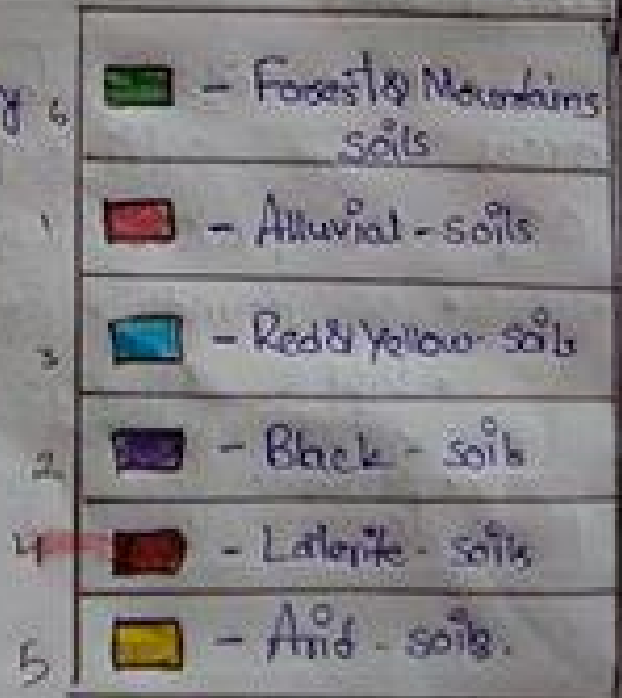 6 - Forest & Mountains
soils
1 - Alluvial - soils
3 - Red & Yellow - soils
2 - Black - soils
4 - Laterite - soils
5 - Arid - soils.